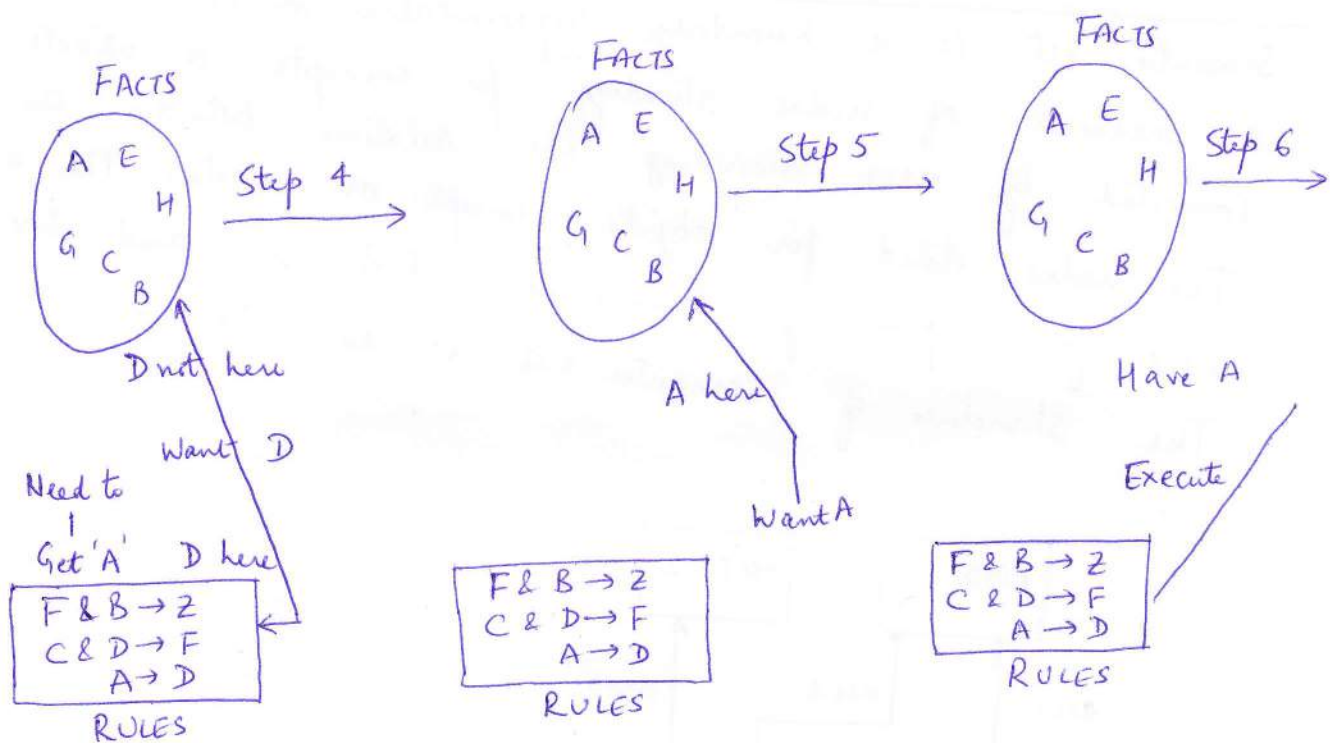 FACTS
A E
H
G C
B
Step 4
D not here
Want D
Need to
Get 'A' D here
F & B → Z
C & D → F
A → D
RULES
FACTS
A E
H
G C
B
Step 5
A here
Want A
F & B → Z
C & D → F
A → D
RULES
FACTS
A E
H
G C
B
Step 6
Have A
Execute
F & B → Z
C & D → F
A → D
RULES